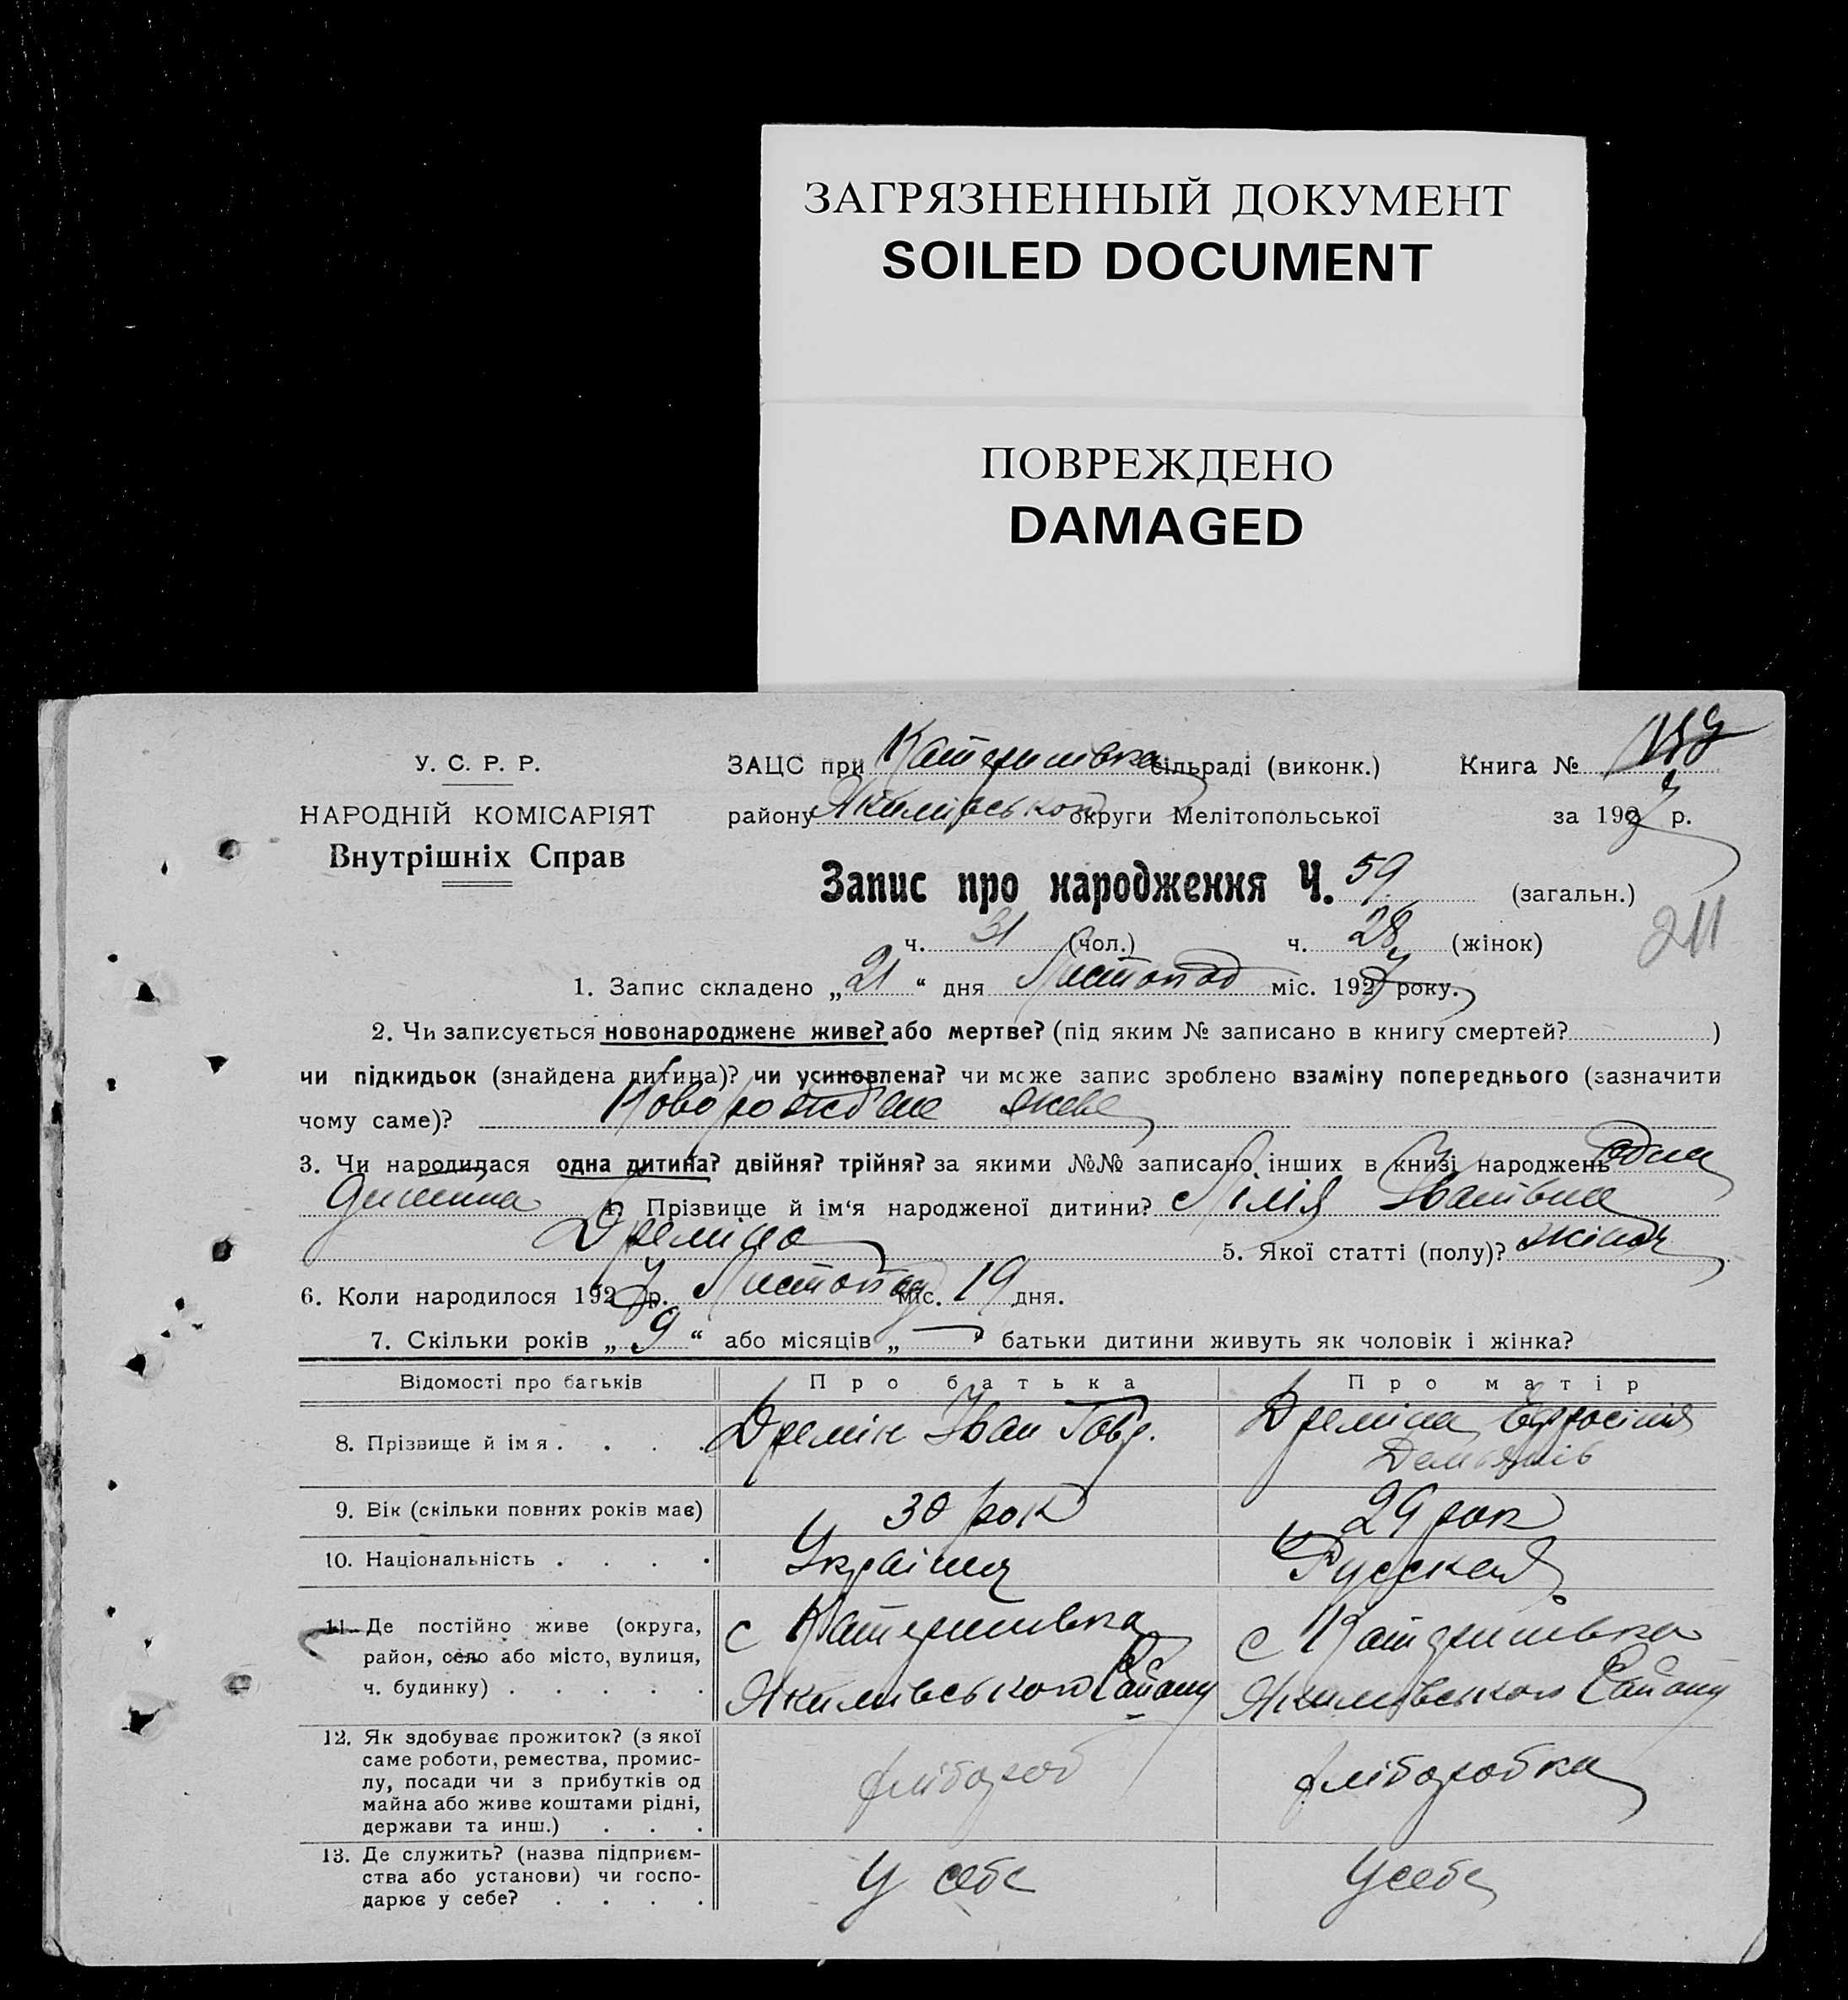 ЗАГРЯЗНЕННЫЙ ДОКУМЕНТ
SOILED DOCUMENT
ПОВРЕЖДЕНО
DAMAGED
У. С. Р. Р.
НАРОДНІЙ КОМІСАРІЯТ
Внутрішніх Справ
ЗАЦС при Катеринівка сільраді (виконк.) Книга №
району Якимівського округи Мелітопольської за 1927 р.
Запис про народження Ч. 59 (загальн.)
ч. 31 (чол.) ч. 28 (жінок)
211
1. Запис складено „21“ дня Листопад міс. 1927 року.
2. Чи записується новонароджене живе? або мертве? (під яким № записано в книгу смертей? )
чи підкидьок (знайдена дитина)? чи усиновлена? чи може запис зроблено взаміну попереднього (зазначити
чому саме)? Новорожд'ене живе
3. Чи народилася одна дитина? двійня? трійня? за якими №№ записано інших в книзі народжень одна
дитина 4. Прізвище й ім‘я народженої дитини? Лілія Іванівна
Дреміна 5. Якої статті (полу)? жіноч
6. Коли народилося 1927 р. Листопад міс. 19 дня.
7. Скільки років „9“ або місяців „ “ батьки дитини живуть як чоловік і жінка?
Відомості про батьків Про батька Про матір
8. Прізвище й імя . . . . Дремін Іван Гавр. Дреміна Ефросінія
Демьянів
9. Вік (скільки повних років має) 30 рок 29 рок
10. Національність . . . . Україна Русская
11. Де постійно живе (округа, район, село або місто, вулиця, ч. будинку) . . . . . с Катеринівка Якимівського Району с Катеринівка Якимівського Району
12. Як здобуває прожиток? (з якої саме роботи, ремества, промислу, посади чи з прибутків од майна або живе коштами рідні, держави та инш.) . . . хлібороб хліборобка
13. Де служить? (назва підприємства або установи) чи господарює у себе? . . . . У себе У себе